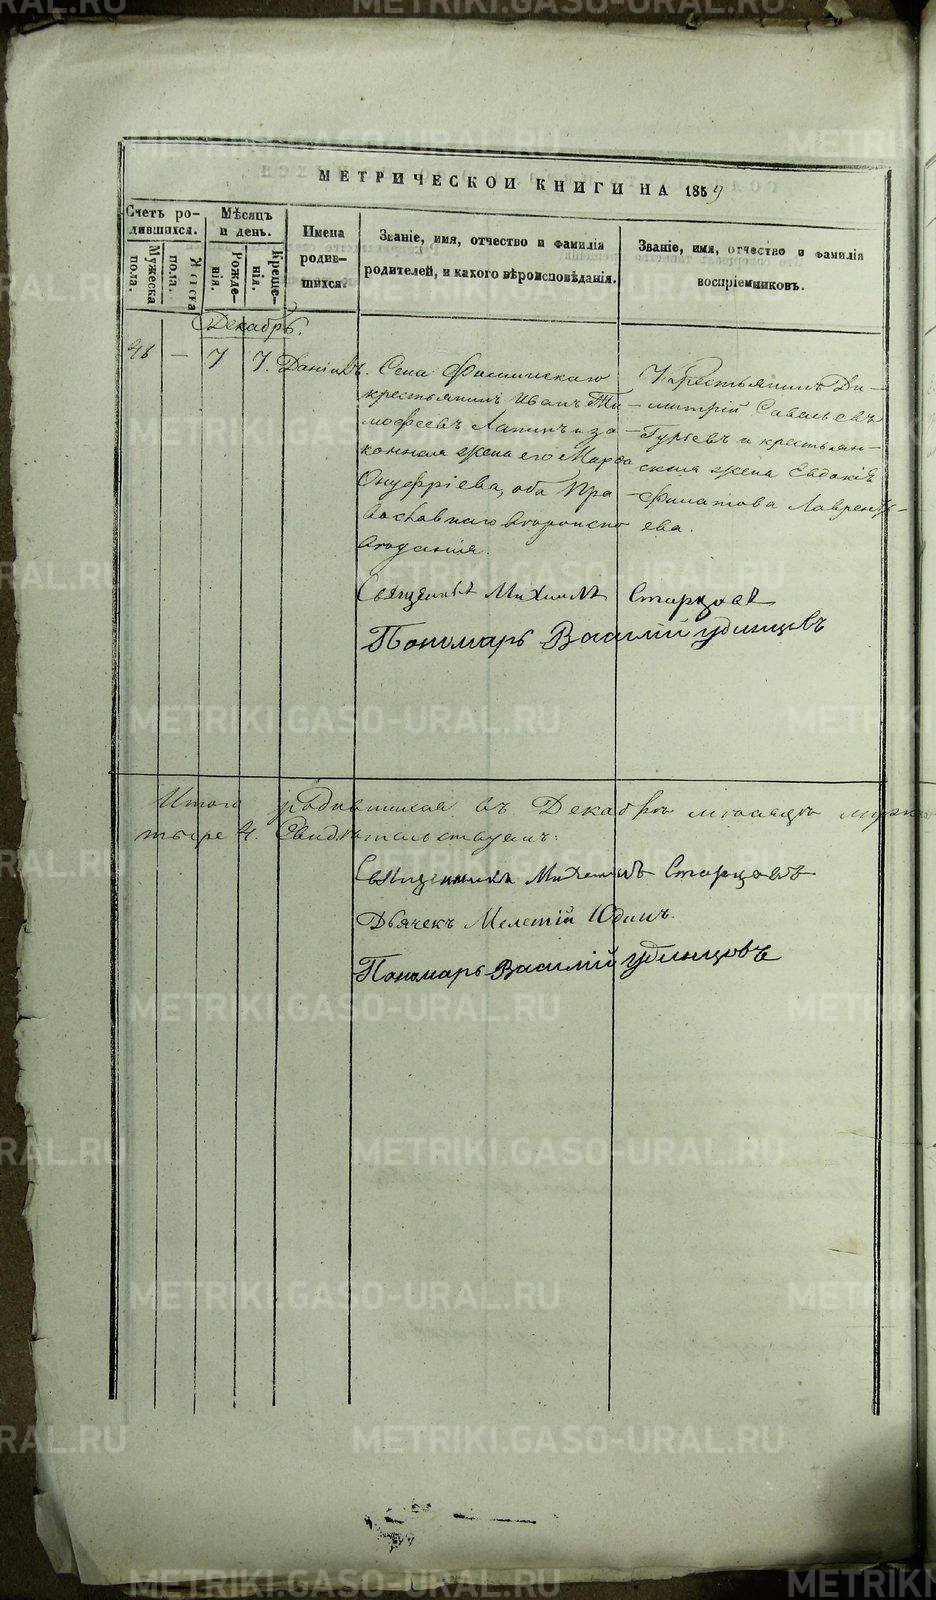 МЕТРИЧЕСКОЙ КНИГИ НА 1859
Счетъ ро-
дившихся.
Мужеска пола.
Женска пола.
Мѣсяцъ
и день.
Рожде-
нія.
Креще-
нія.
Имена
родив-
шихся.
Званіе, имя, отчество и фамилія
родителей, и какого вѣроисповѣданія.
Званіе, имя, отчество и фамилія
воспріемниковъ.
Декабрь.
46 — 7 7. Даніилъ.
Села
крестьянинъ Иванъ Ти-
мофеевъ Лапинъ и за-
конная жена его Марфа
Онуфріева, оба Пра-
вославнаго вѣроиспо-
вѣданія.
Крестьянинъ Ди-
митрій Савельевъ
Гурьевъ и крестьян-
ская жена Евдокія
Филатова Лаврентьева.
Священникъ Михаилъ Старцовъ
Пономарь Василій Удинцовъ
Итого родившихся въ Декабрѣ мѣсяцѣ мужеска
4. Свидѣтельствуемъ:
Священникъ Михаилъ Старцовъ
Дьячекъ Мелетій Юдинъ.
Пономарь Василій Удинцовъ
METRIKI.GASO-URAL.RU